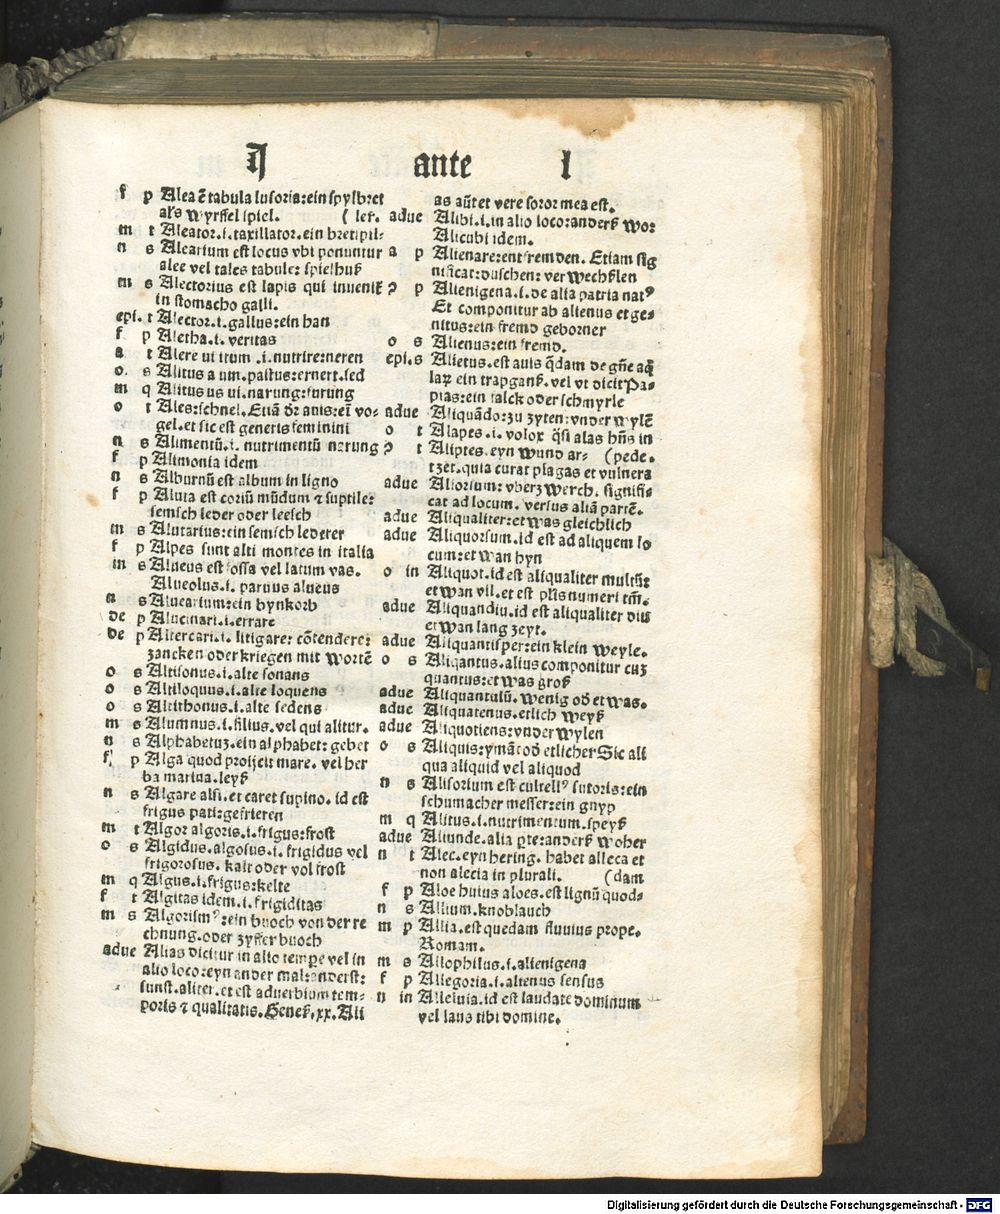 A ante l
f p Alea ē tabula lusoria: ein spylbret
als wyrffel spiel. ( ler.
m t Aleator .i. taxillator. ein bretspil-
n s Alearium est locus vbi ponuntur
alee vel tales tabule: spielhuß
m s Alectorius est lapis qui inuenit᷑
in stomacho galli.
epi. t Alector .i. gallus: ein han
f p Aletha .i. veritas
a t Alere ui itum .i. nutrire: neren
o s Alitus a um. pastus: ernert. sed
m q Alitus us ui. narung: furung
o t Ales: schnel. Etiā d̄r auis: eī vo-
gel. et sic est generis feminini
n s Alimentū .i. nutrimentū narung
f p Alimonia idem
n s Alburnū est album in ligno
f p Aluta est coriū mūdum ⁊ suptile:
semsch leder oder leesch
m s Alutarius: ein semsch lederer
f p Alpes sunt alti montes in italia
m s Alueus est fossa vel latum vas.
Alueolus .i. paruus alueus
n s Aluearium: ein bynkorb
de p Alucinari .i. errare
de p Altercari .i. litigare: cōtendere:
zancken oder kriegen mit wortē
o s Altisonus .i. alte sonans
o s Altiloquus .i. alte loquens
o s Altithonus .i. alte sedens
m s Alumnus .i. filius. vel qui alitur.
n s Alphabetuz. ein alphabet: gebet
f p Alga quod proijcit mare. vel her
ba marina. leyß
n s Algare alsi. et caret supino. id est
frigus pati: gefrieren
m t Algor algoris .i. frigus: frost
o s Algidus. algosus .i. frigidus vel
frigorosus. kalt oder vol frost
m q Algus .i. frigus: kelte
f t Algitas idem .i. frigiditas
m s Algorismꝰ: ein buoch von der re
chnung. oder zyffer buoch
adue Alias dicitur in alio tempe vel in
alio loco: eyn ander mal: anderst:
sunst. aliter. et est aduerbium tem-
poris ⁊ qualitatis. Geneß. xx. Ali
as aūt et vere soror mea est.
adue Alibi .i. in alio loco: anderß wo:
Alicubi idem.
a p Alienare: entfremden. Etiam sig
nificat: duschen: verwechßlen
? p Alienigena .i. de alia patria natꝰ
Et componitur ab alienus et ge-
nitus: ein fremd geborner
o s Alienus: ein fremd.
epi. s Alietus. est auis q̄dam de gn̄e aq̄
laꝝ ein trapganß. vel vt dicit Pa-
pias: ein falck oder schmyrle
adue Aliquādo: zu zyten: vnder wylē
o t Alapes .i. volox q̄si alas hn̄s in
? t Aliptes. eyn wund ar- (pede.
tzet. quia curat plagas et vulnera
adue Aliorium: vberz werch. signifi-
cat ad locum. versus aliā partē.
adue Aliqualiter: etwas gleichlich
adue Aliquorsum. id est ad aliquem lo
cum: et wan hyn
o in Aliquot. id est aliqualiter multū:
etwan vil. et est pl̄is numeri tm̄.
adue Aliquandiu. id est aliqualiter diu
etwan lang zeyt.
adue Aliquantisper: ein klein weyle.
o s Aliqantus. alius componitur cuz
quantus: etwas groß
adue Aliquantulū. wenig od̄ etwas.
adue Aliquatenus. etlich weyß
adue Aliquotiens: vnder wylen
o s Aliquis: ymāt od̄ etlicher Sic ali
qua aliquid vel aliquod
n s Alisorium est cultellꝰ sutoris: ein
schumacher messer: ein gnyp
m q Alitus .i. nutrimentum. speyß
adue Aliunde. alia p̱te: anderß woher
n t Alec. eyn hering. habet alleca et
non alecia in plurali. (dam
f p Aloe huius aloes. est lignū quod-
n s Allium. knoblauch
m p Allia. est quedam fluuius prope.
Romam.
m s Allophilus .i. alienigena
f p Allegoria .i. alienus sensus
n in Alleluia. id est laudate dominum
vel laus tibi domine.
Digitalisierung gefördert durch die Deutsche Forschungsgemeinschaft - DFG